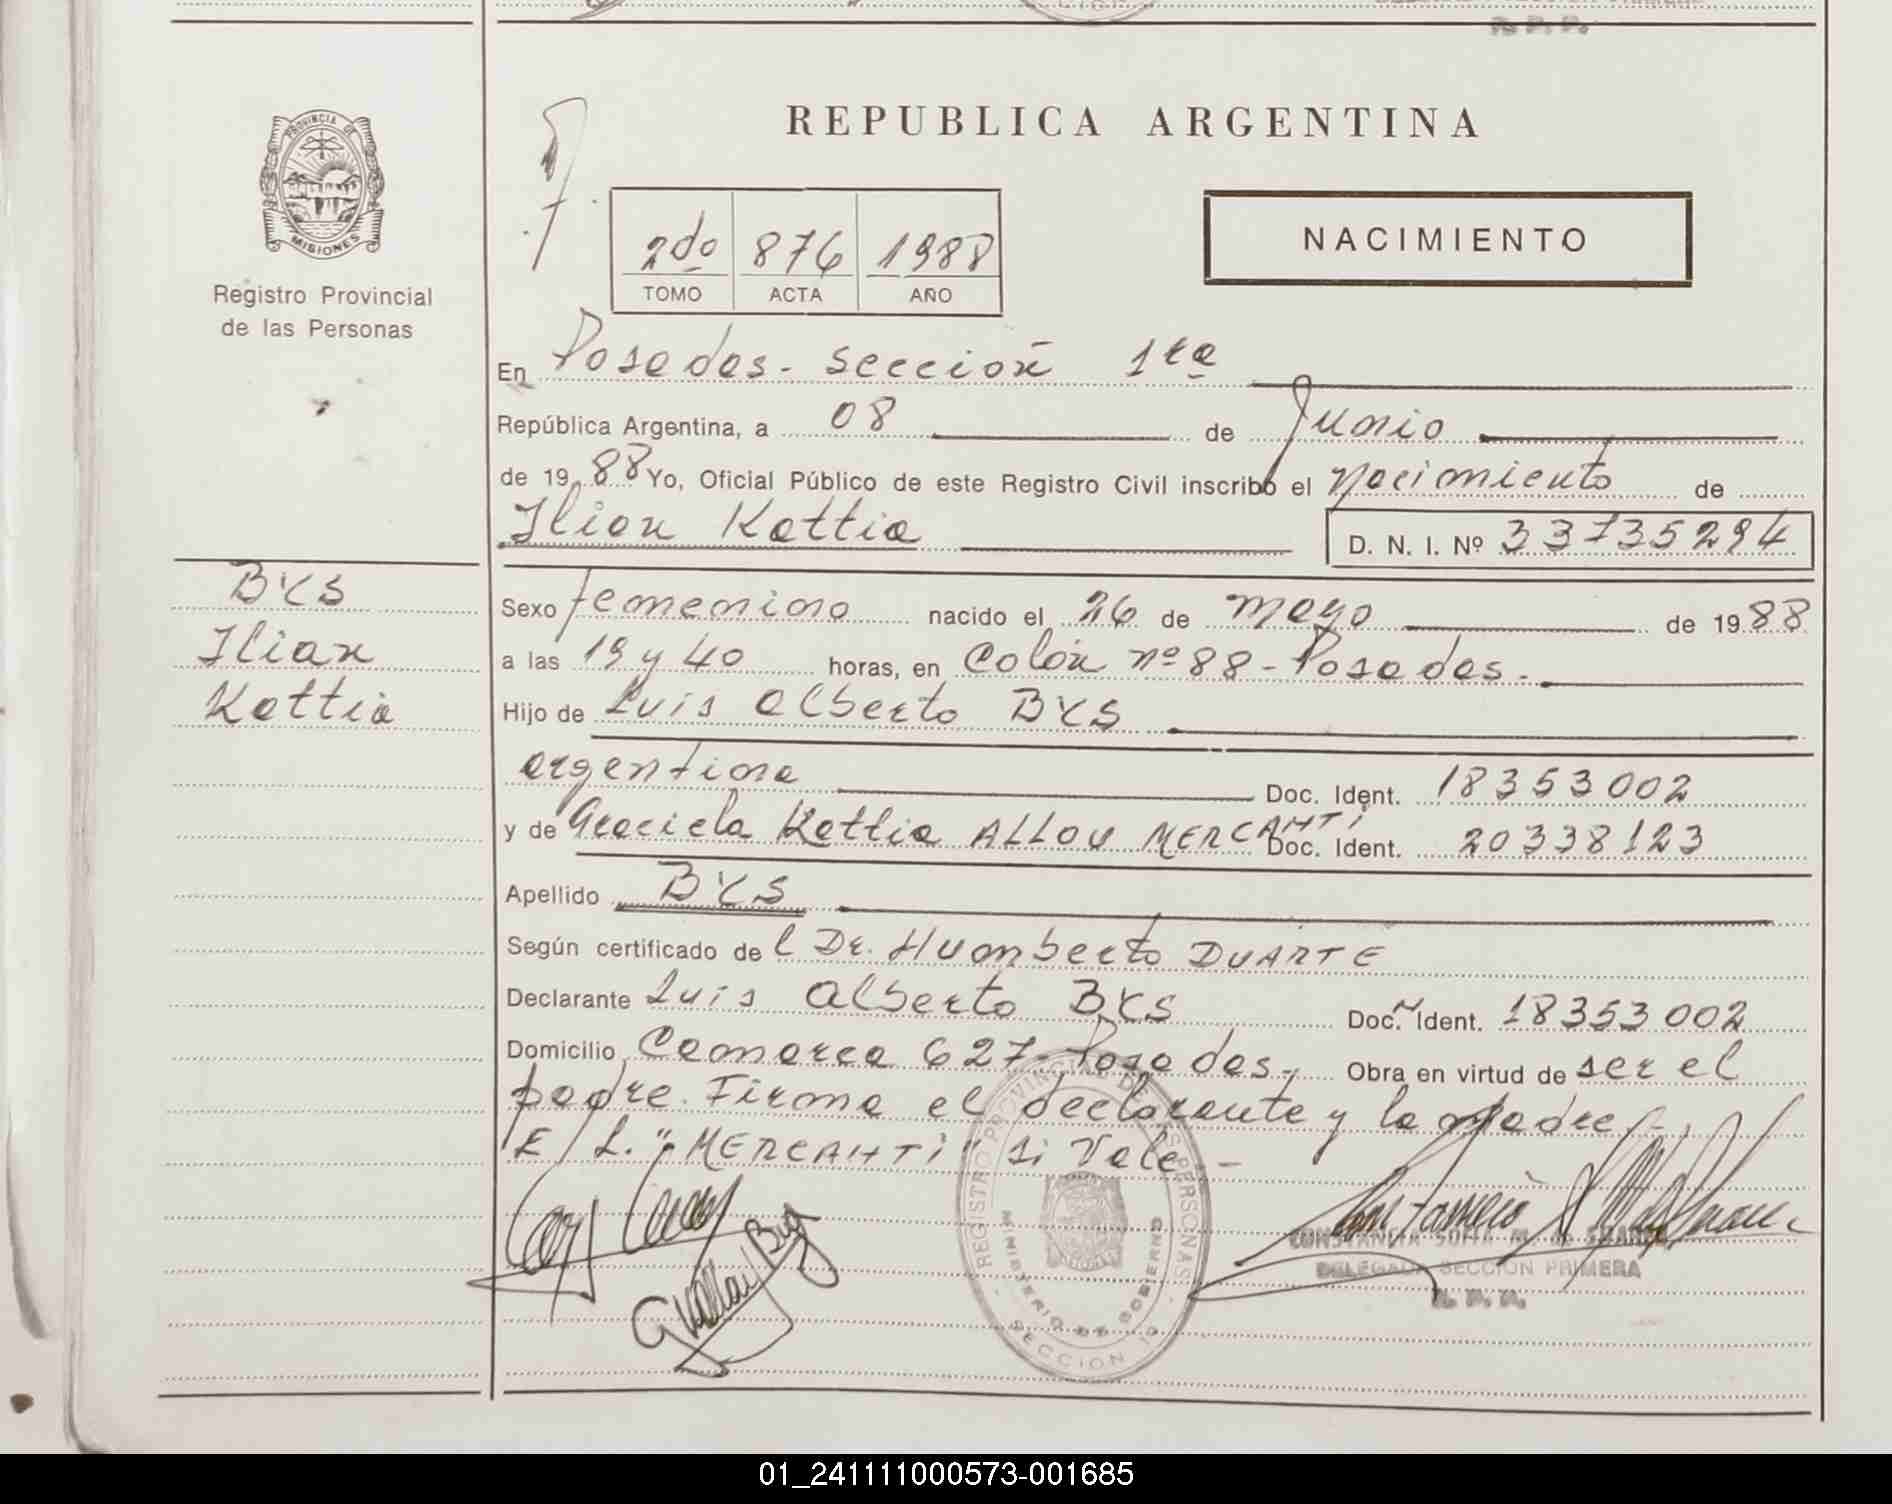 R. P. P.
PROVINCIA DE
MISIONES
Registro Provincial
de las Personas
REPUBLICA ARGENTINA
2do 876 1988
TOMO ACTA AÑO
NACIMIENTO
En Posadas - sección 1ra
República Argentina, a 08 de Junio
de 19 88 Yo, Oficial Público de este Registro Civil inscribo el nacimiento de
Ilian Kattia D. N. I. Nº 33735294
BYS
Ilian
Kattia
Sexo femenino nacido el 26 de mayo de 19 88
a las 19 y 40 horas, en Colón nº 88 - Posadas.
Hijo de Luis Alberto BYS
argentina Doc. Ident. 18353002
y de Graciela Kattia ALLOU MERCANTI Doc. Ident. 20338123
Apellido BYS
Según certificado del Dr. Humberto DUARTE
Declarante Luis Alberto BYS Doc. Ident. 18353002
Domicilio Camarca 627 - Posadas. Obra en virtud de ser el
padre. Firma el declarante y la madre.
E/L. "MERCANTI" si Vale -
REGISTRO PROVINCIAL DE LAS PERSONAS
MINISTERIO DE GOBIERNO
SECCION 1ª
CONSTANCIA SOFIA M. de SUAREZ
DELEGADA SECCION PRIMERA
R. P. P.
01_241111000573-001685